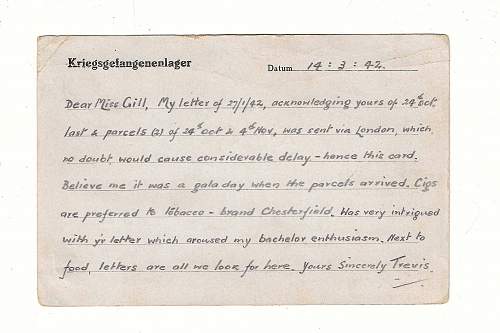 Kriegsgefangenenlager
Datum 14 : 3 : 42.
Dear Miss Gill, My letter of 27/1/42, acknowledging yours of 24th Oct
last & parcels (2) of 24th Oct & 4th Nov, was sent via London, which,
no doubt would cause considerable delay – hence this card.
Believe me it was a gala day when the parcels arrived. Cigs
are preferred to tobacco – brand Chesterfield. Was very intrigued
with y'r letter which aroused my bachelor enthusiasm. Next to
food, letters are all we look for here. Yours Sincerely Trevis.